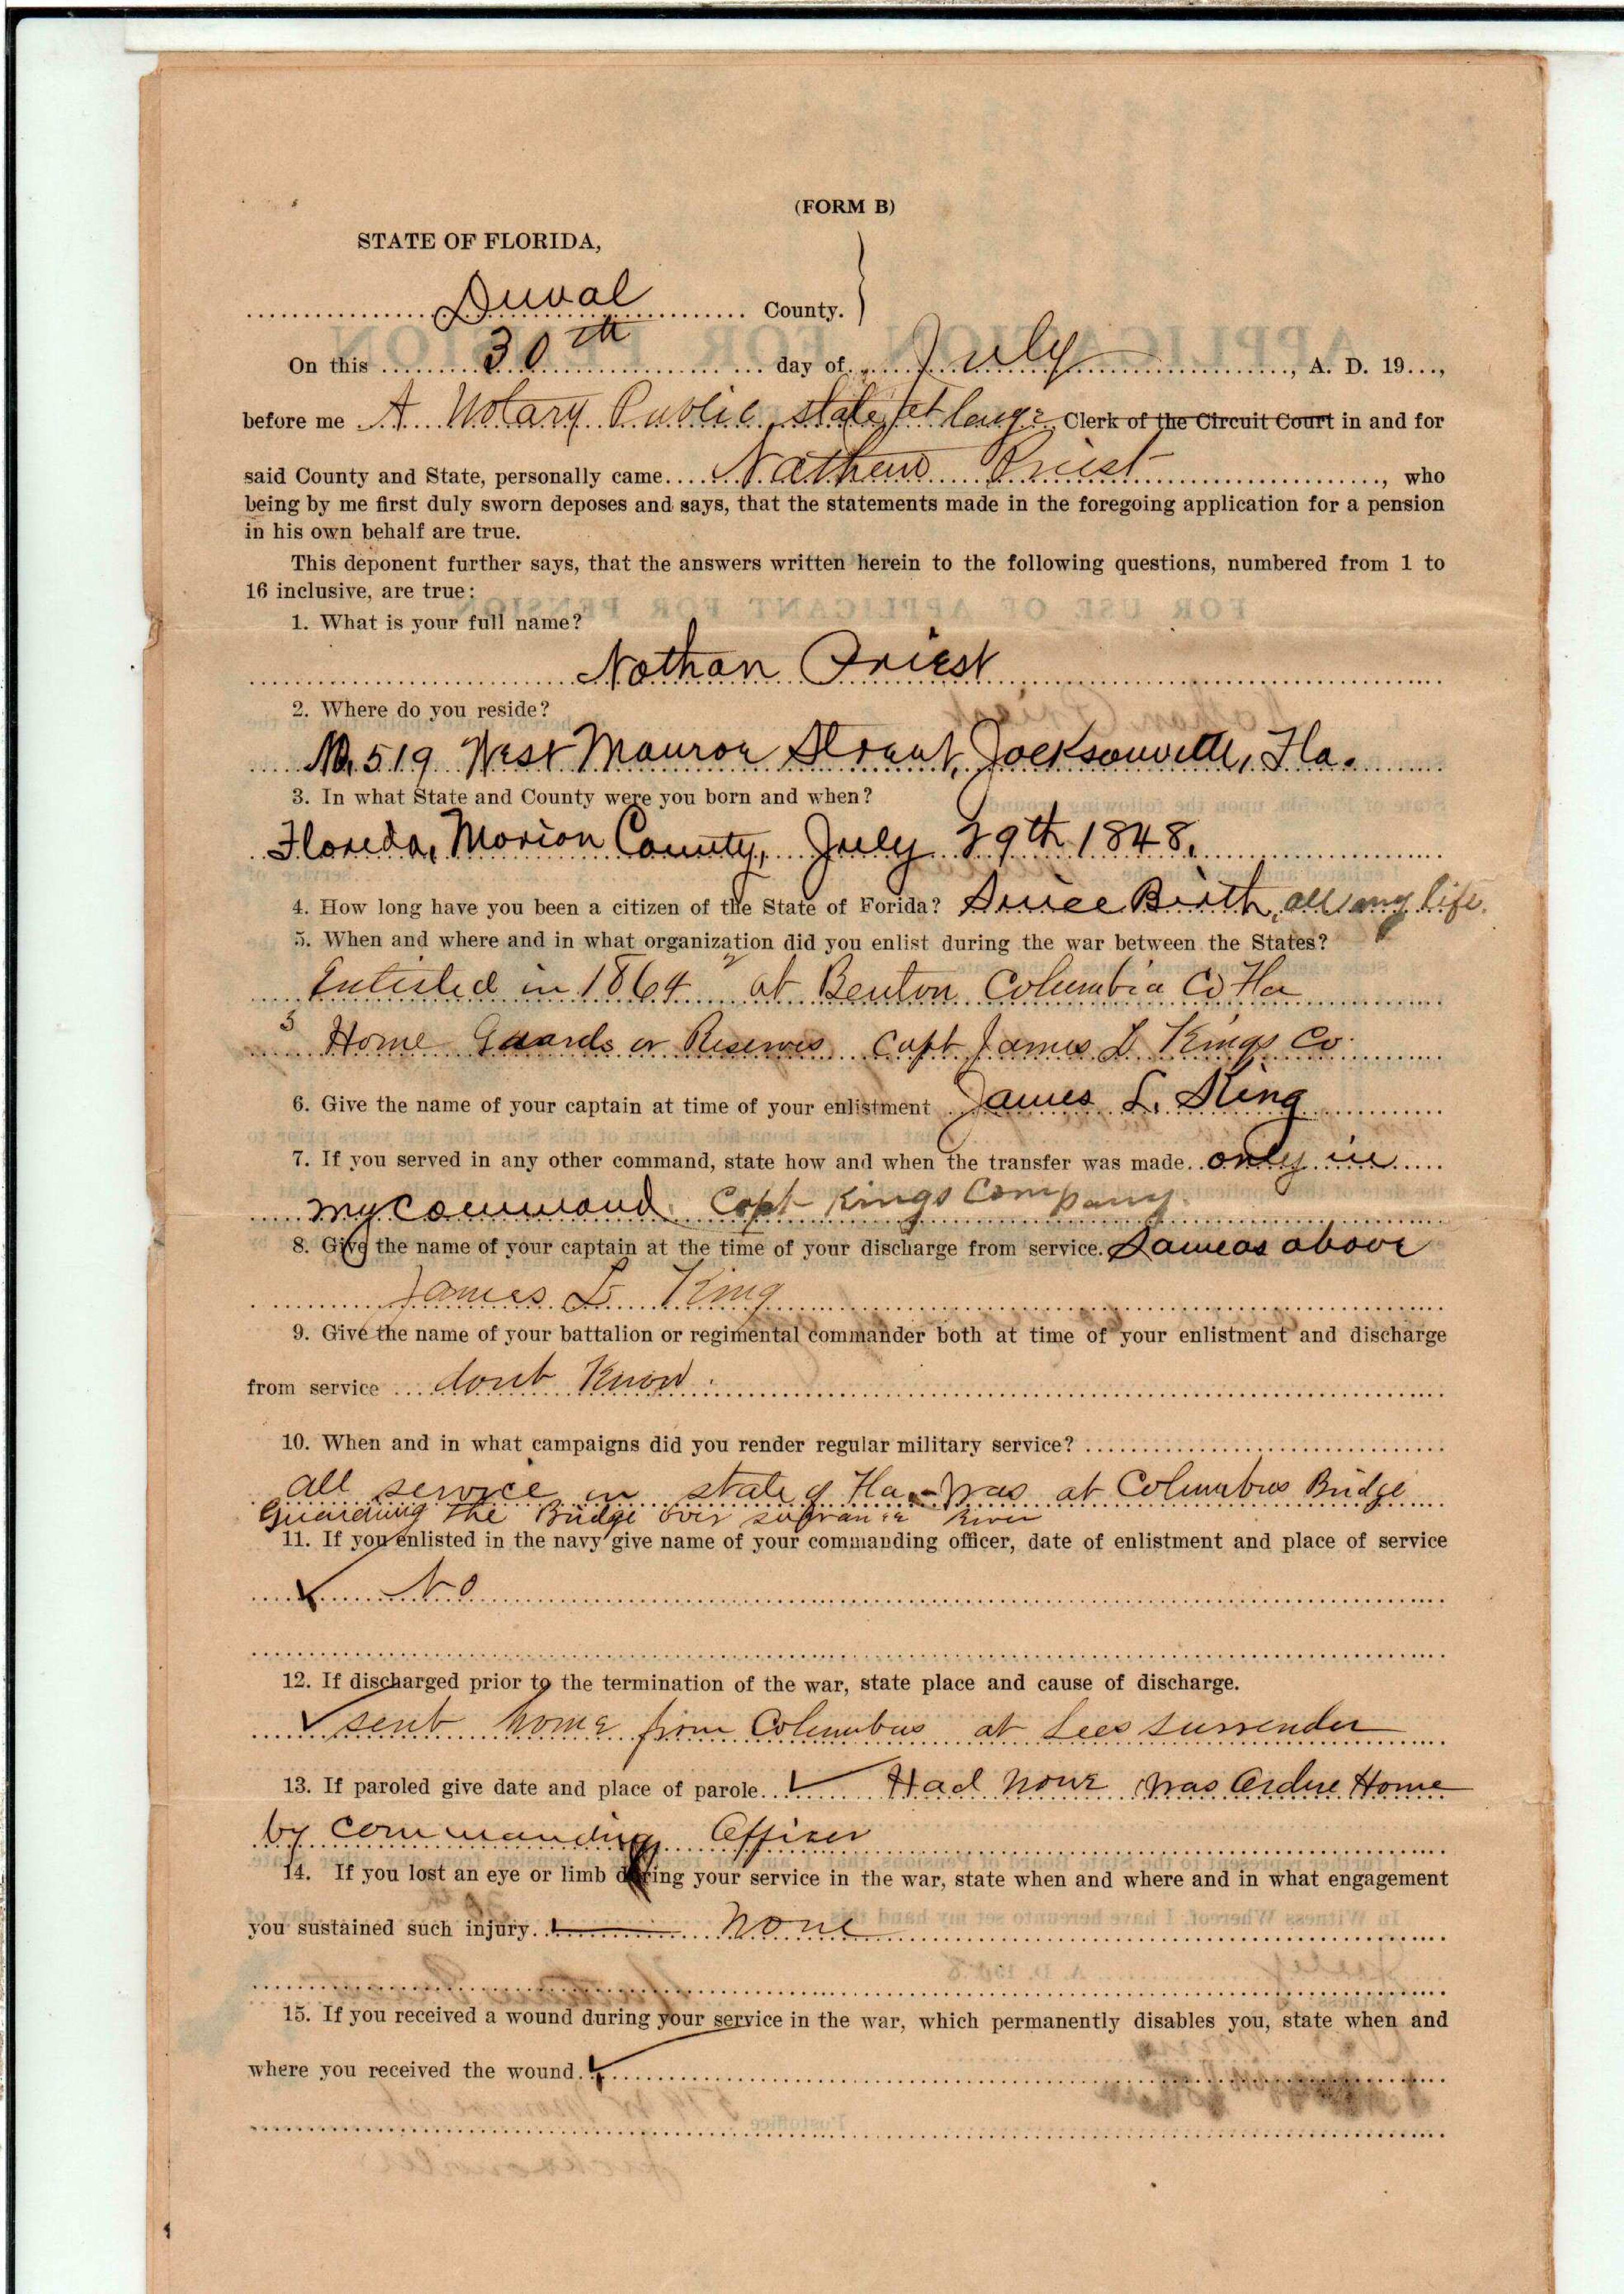 (FORM B)
STATE OF FLORIDA,
Duval County.
On this 30th day of July, A. D. 19...,
before me A Notary Public state at large Clerk of the Circuit Court in and for
said County and State, personally came Nathan Priest, who
being by me first duly sworn deposes and says, that the statements made in the foregoing application for a pension
in his own behalf are true.
This deponent further says, that the answers written herein to the following questions, numbered from 1 to
16 inclusive, are true:
1. What is your full name?
Nathan Priest
2. Where do you reside?
No. 519 West Monroe Street, Jacksonville, Fla.
3. In what State and County were you born and when?
Floreda, Marion County, July 29th 1848.
4. How long have you been a citizen of the State of Forida? Since Birth, all my life.
5. When and where and in what organization did you enlist during the war between the States?
Enlisted in 1864 at Benton Columbia Co Fla
Home Guards or Reserves Capt James L Kings Co.
6. Give the name of your captain at time of your enlistment James L. King
7. If you served in any other command, state how and when the transfer was made. only in
my command. Capt Kings Company.
8. Give the name of your captain at the time of your discharge from service. Same as above
James L King
9. Give the name of your battalion or regimental commander both at time of your enlistment and discharge
from service dont Know.
10. When and in what campaigns did you render regular military service?
all service in state of Fla - was at Columbus Bridge
Guarding the Bridge over River
11. If you enlisted in the navy give name of your commanding officer, date of enlistment and place of service
No
12. If discharged prior to the termination of the war, state place and cause of discharge.
sent home from Columbus at Lees surrender
13. If paroled give date and place of parole. Had none was Home
by commanding Officer
14. If you lost an eye or limb during your service in the war, state when and where and in what engagement
you sustained such injury. none
15. If you received a wound during your service in the war, which permanently disables you, state when and
where you received the wound.